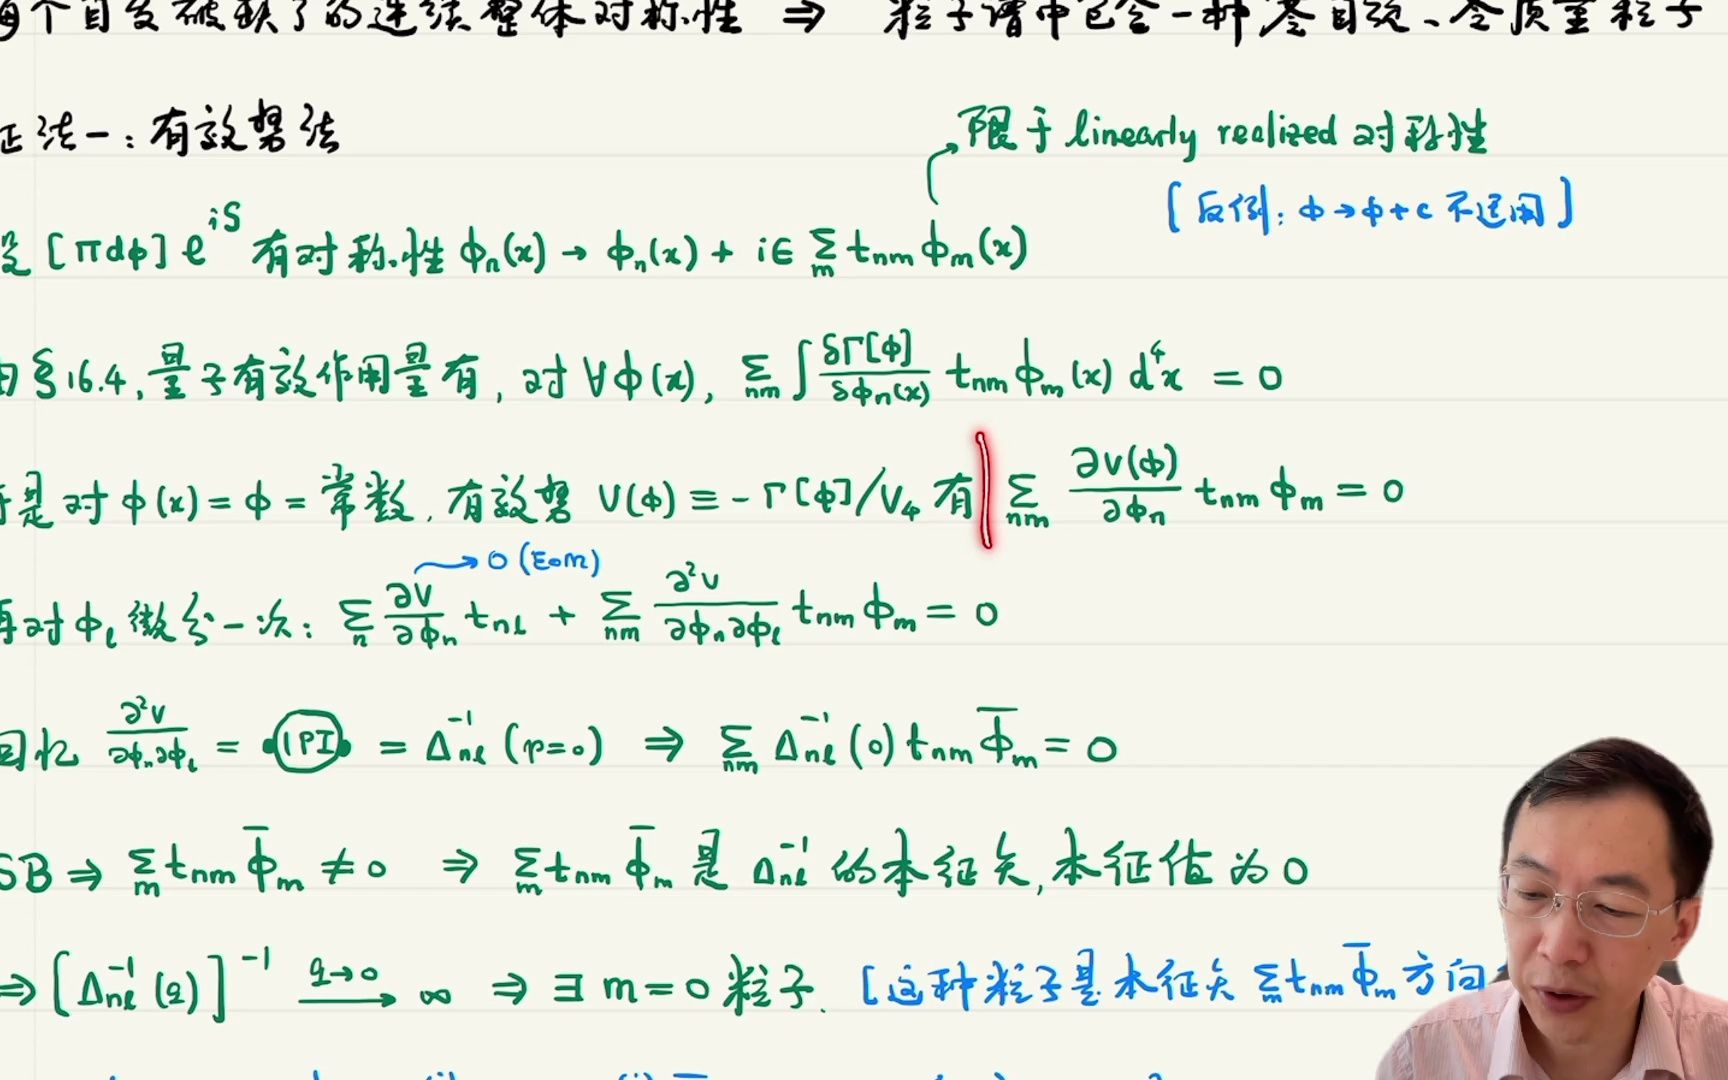 每个自发破缺了的连续整体对称性 ⇒ 粒子谱中包含一种零自旋、零质量粒子
证法一：有效势法
限于 linearly realized 对称性
[反例: φ→φ+c 不适用]
设 [∏dφ] e^{iS} 有对称性 φ_n(x) → φ_n(x) + iϵ Σ_m t_{nm} φ_m(x)
由 §16.4, 量子有效作用量有, 对 ∀φ(x), Σ_{nm} ∫ δΓ[φ]/δφ_n(x) t_{nm} φ_m(x) d^4x = 0
于是对 φ(x) = φ = 常数, 有效势 V(φ) ≡ -Γ[φ]/V_4 有 Σ_{nm} ∂V(φ)/∂φ_n t_{nm} φ_m = 0
→ 0 (EoM)
再对 φ_l 微分一次: Σ_n ∂V/∂φ_n t_{nl} + Σ_{nm} ∂²V/∂φ_n∂φ_l t_{nm} φ_m = 0
回忆 ∂²V/∂φ_n∂φ_l = 1PI = Δ^{-1}_{nl} (p=0) ⇒ Σ_{nm} Δ^{-1}_{nl}(0) t_{nm} φ̄_m = 0
SB ⇒ Σ_m t_{nm} φ̄_m ≠ 0 ⇒ Σ_m t_{nm} φ̄_m 是 Δ^{-1}_{nl} 的本征矢, 本征值为 0
⇒ [Δ^{-1}_{nl}(q)]^{-1} q→0 ⟶ ∞ ⇒ ∃ m=0 粒子. [这种粒子是本征矢 Σ_m t_{nm} φ̄_m 方向